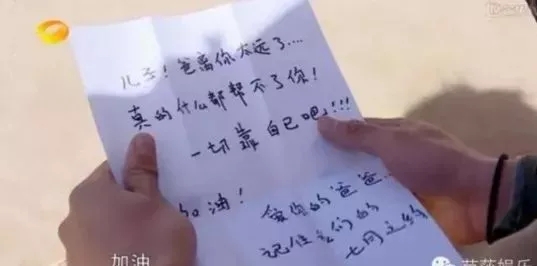 儿子！爸离你太远了....
真的什么都帮不了你！
一切靠自己吧，!!!
加油！
爱你的爸爸...
记住我们的
七月之约
加油
莎莎娱乐